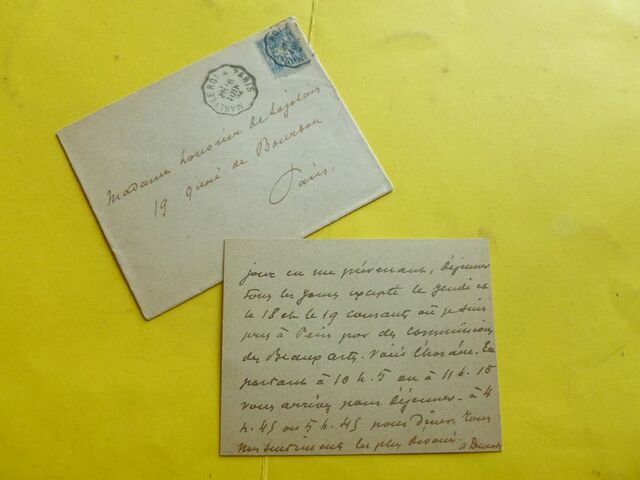 MARLY-LE-ROI A PARIS
Madame
19 quai de Bourbon
Paris.
jour en me prévenant, déjeuner
tous les jours excepté le jeudi et
le 18 et le 19 courant où je suis
pris à Paris par des commissions
des Beaux arts. Voici l'horaire. En
partant à 10 h. 5 ou à 11 h. 15
vous arrivez pour déjeuner - à 4
h. 45 ou 5 h. 45 pour dîner. Tous
mes sentiments les plus dévoués.